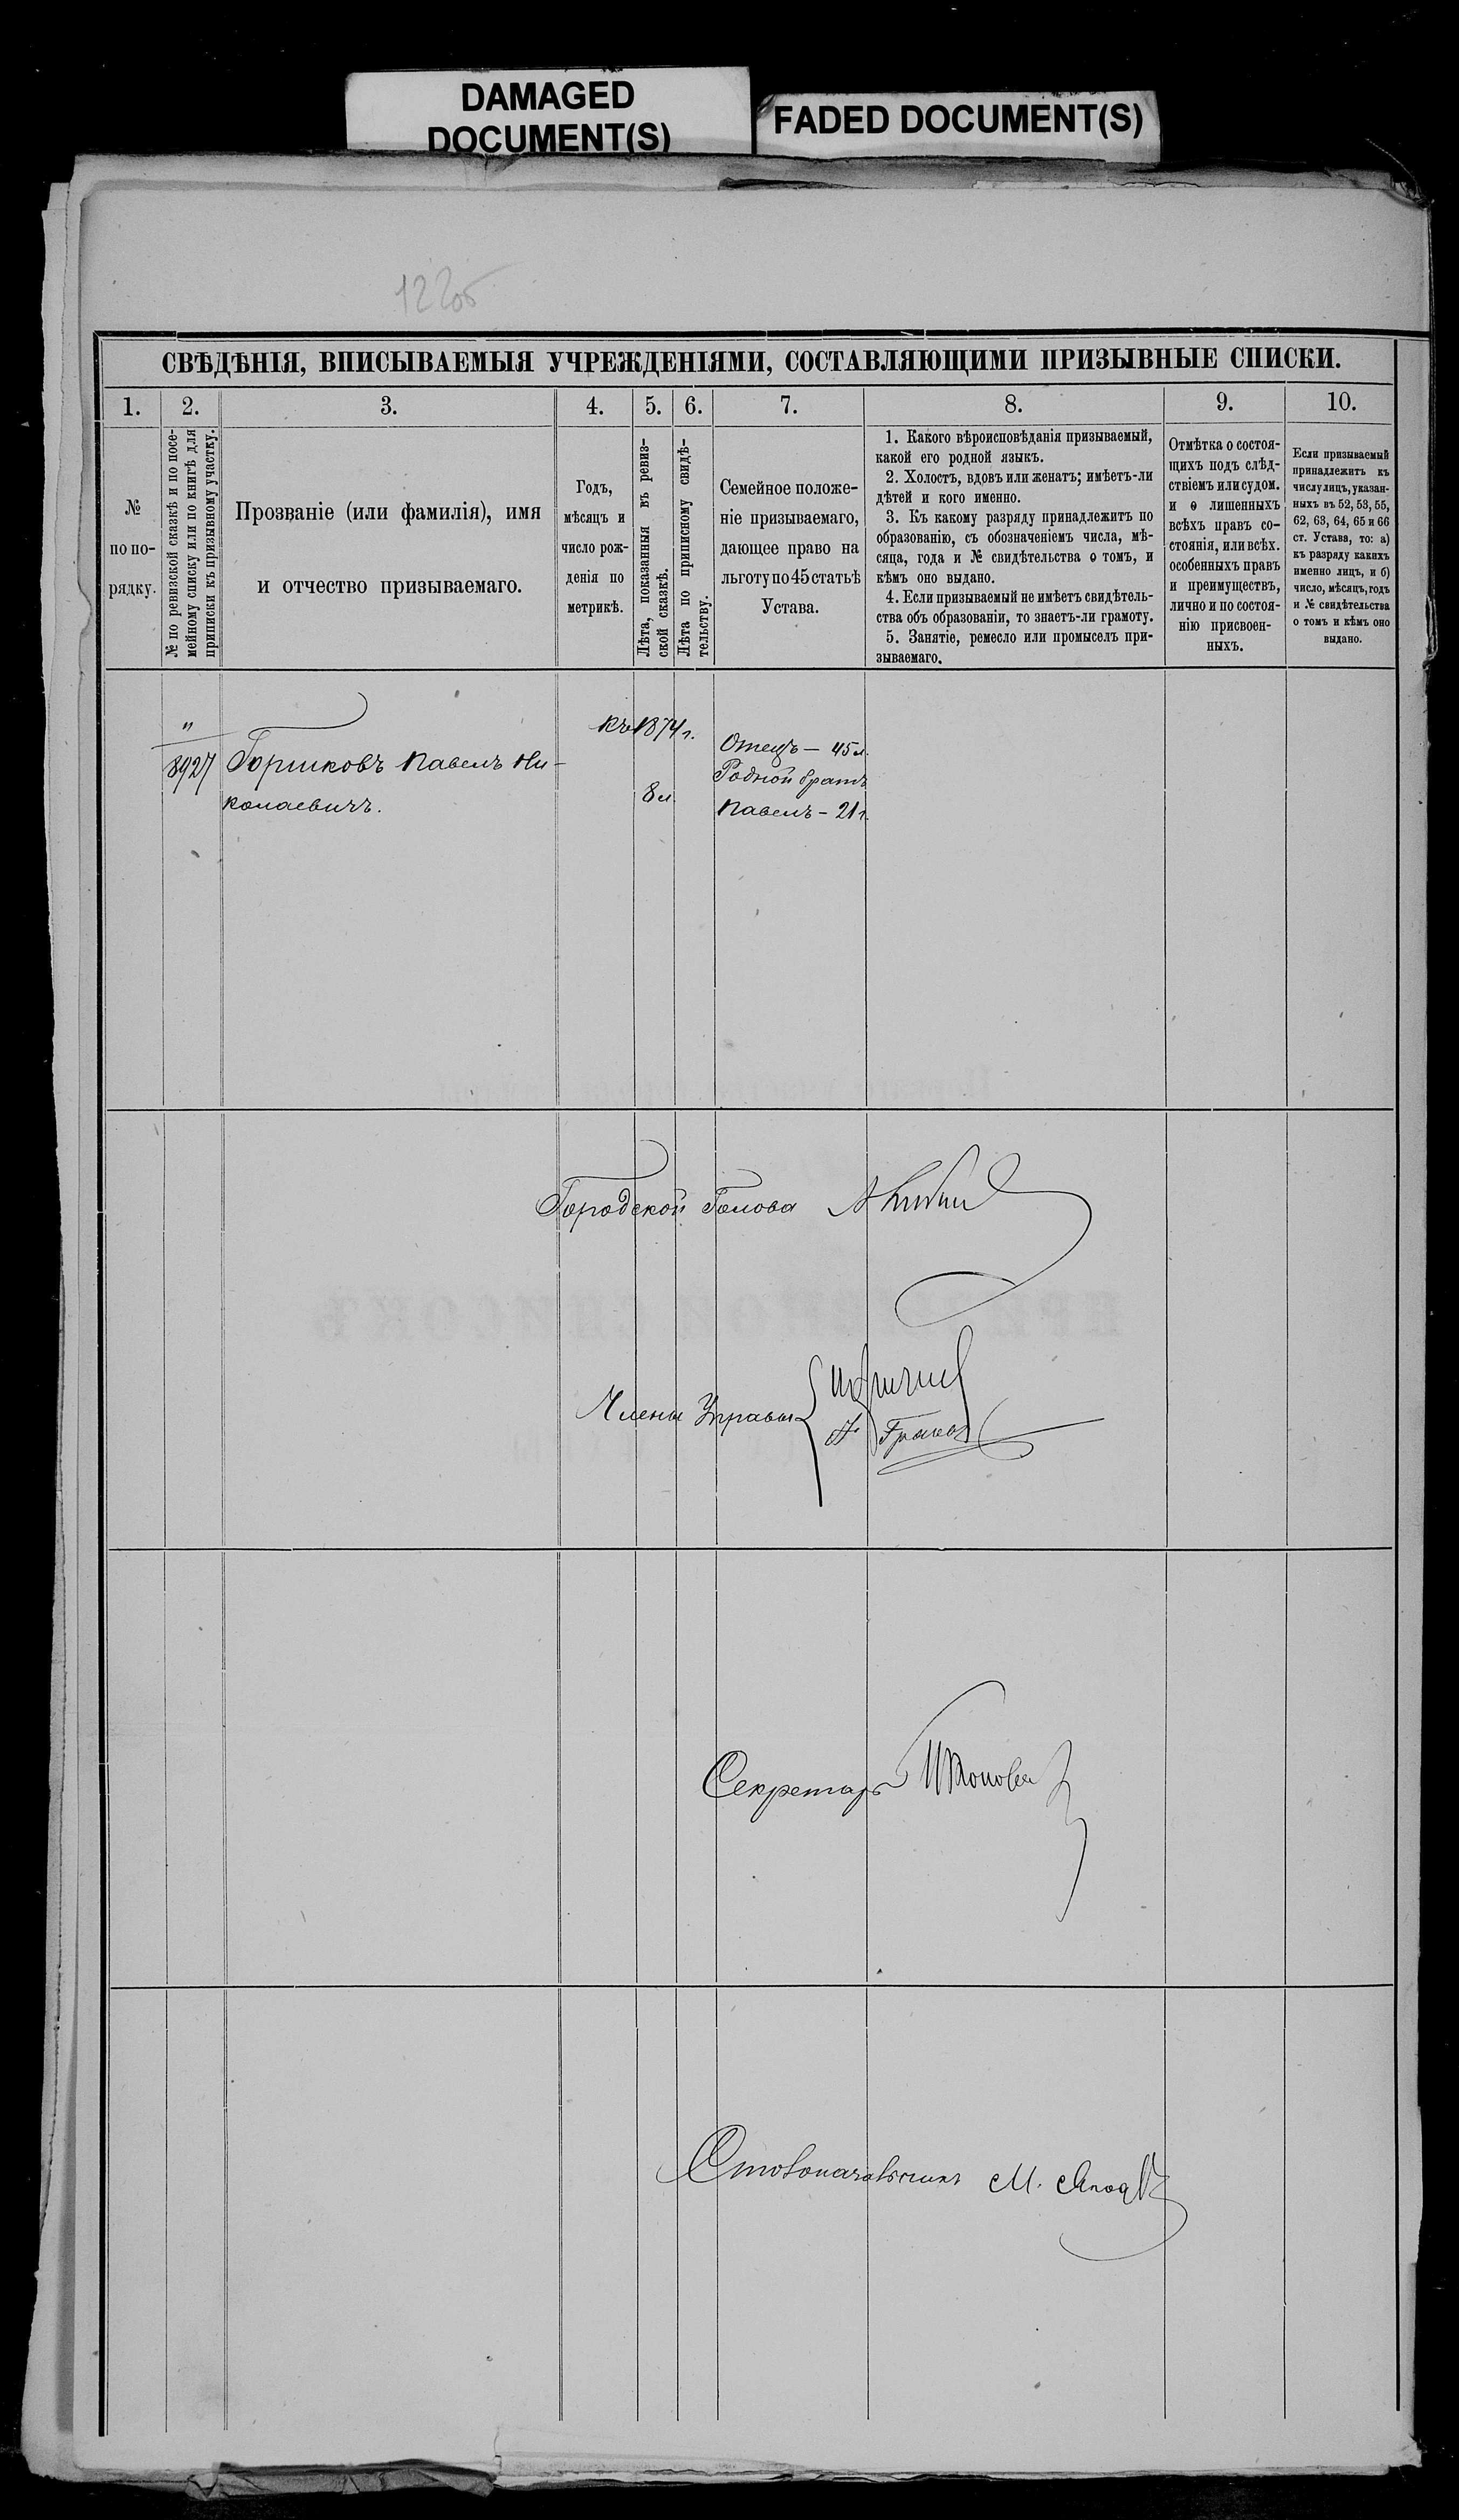 DAMAGED
DOCUMENT(S)
FADED DOCUMENT(S)
122об
СВѢДѢНІЯ, ВПИСЫВАЕМЫЯ УЧРЕЖДЕНІЯМИ, СОСТАВЛЯЮЩИМИ ПРИЗЫВНЫЕ СПИСКИ.
1.
2.
3.
4.
5.
6.
7.
8.
9.
10.
№
по по-
рядку.
№ по ревизской сказкѣ и по посе-
мейному списку или по книгѣ для
приписки къ призывному участку.
Прозваніе (или фамилія), имя
и отчество призываемаго.
Годъ,
мѣсяцъ и
число рож-
денія по
метрикѣ.
Лѣта, показанныя въ ревиз-
ской сказкѣ.
Лѣта по приписному свидѣ-
тельству.
Семейное положе-
ніе призываемаго,
дающее право на
льготу по 45 статьѣ
Устава.
1. Какого вѣроисповѣданія призываемый,
какой его родной языкъ.
2. Холостъ, вдовъ или женатъ; имѣетъ-ли
дѣтей и кого именно.
3. Къ какому разряду принадлежитъ по
образованію, съ обозначеніемъ числа, мѣ-
сяца, года и № свидѣтельства о томъ, и
кѣмъ оно выдано.
4. Если призываемый не имѣетъ свидѣтель-
ства объ образованіи, то знаетъ-ли грамоту.
5. Занятіе, ремесло или промыселъ при-
зываемаго.
Отмѣтка о состоя-
щихъ подъ слѣд-
ствіемъ или судом.
и о лишенныхъ
всѣхъ правъ со-
стоянія, или всѣх.
особенныхъ правъ
и преимуществъ,
лично и по состоя-
нію присвоен-
ныхъ.
Если призываемый
принадлежитъ къ
числу лицъ, указан-
ныхъ въ 52, 53, 55,
62, 63, 64, 65 и 66
ст. Устава, то: а)
къ разряду какихъ
именно лицъ, и б)
число, мѣсяцъ, годъ
и № свидѣтельства
о томъ и кѣмъ оно
выдано.
"
8927
Горшковъ Павелъ Ни-
колаевичъ.
Къ 1874 г.
8 л.
Отецъ — 45 л.
Родной братъ
Павелъ — 21 г.
Городской Голова
Члены Управы
Секретарь
Столоначальникъ М.